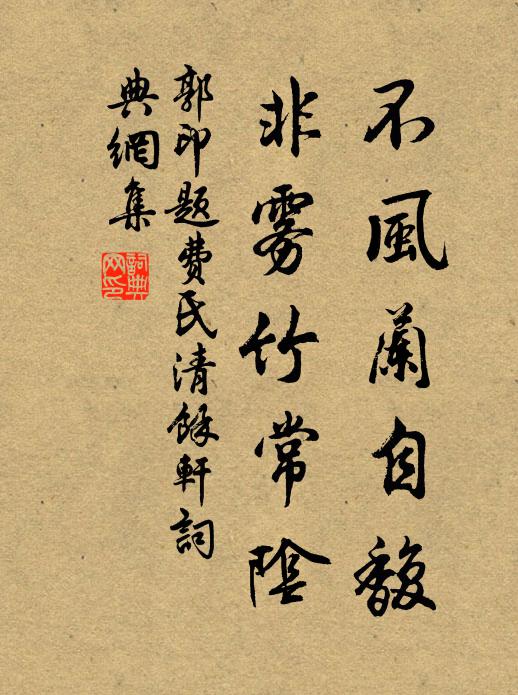 不風蘭自馥
非雾竹常陰
郭印題費氏清餘軒詞
典網集
詞典網印